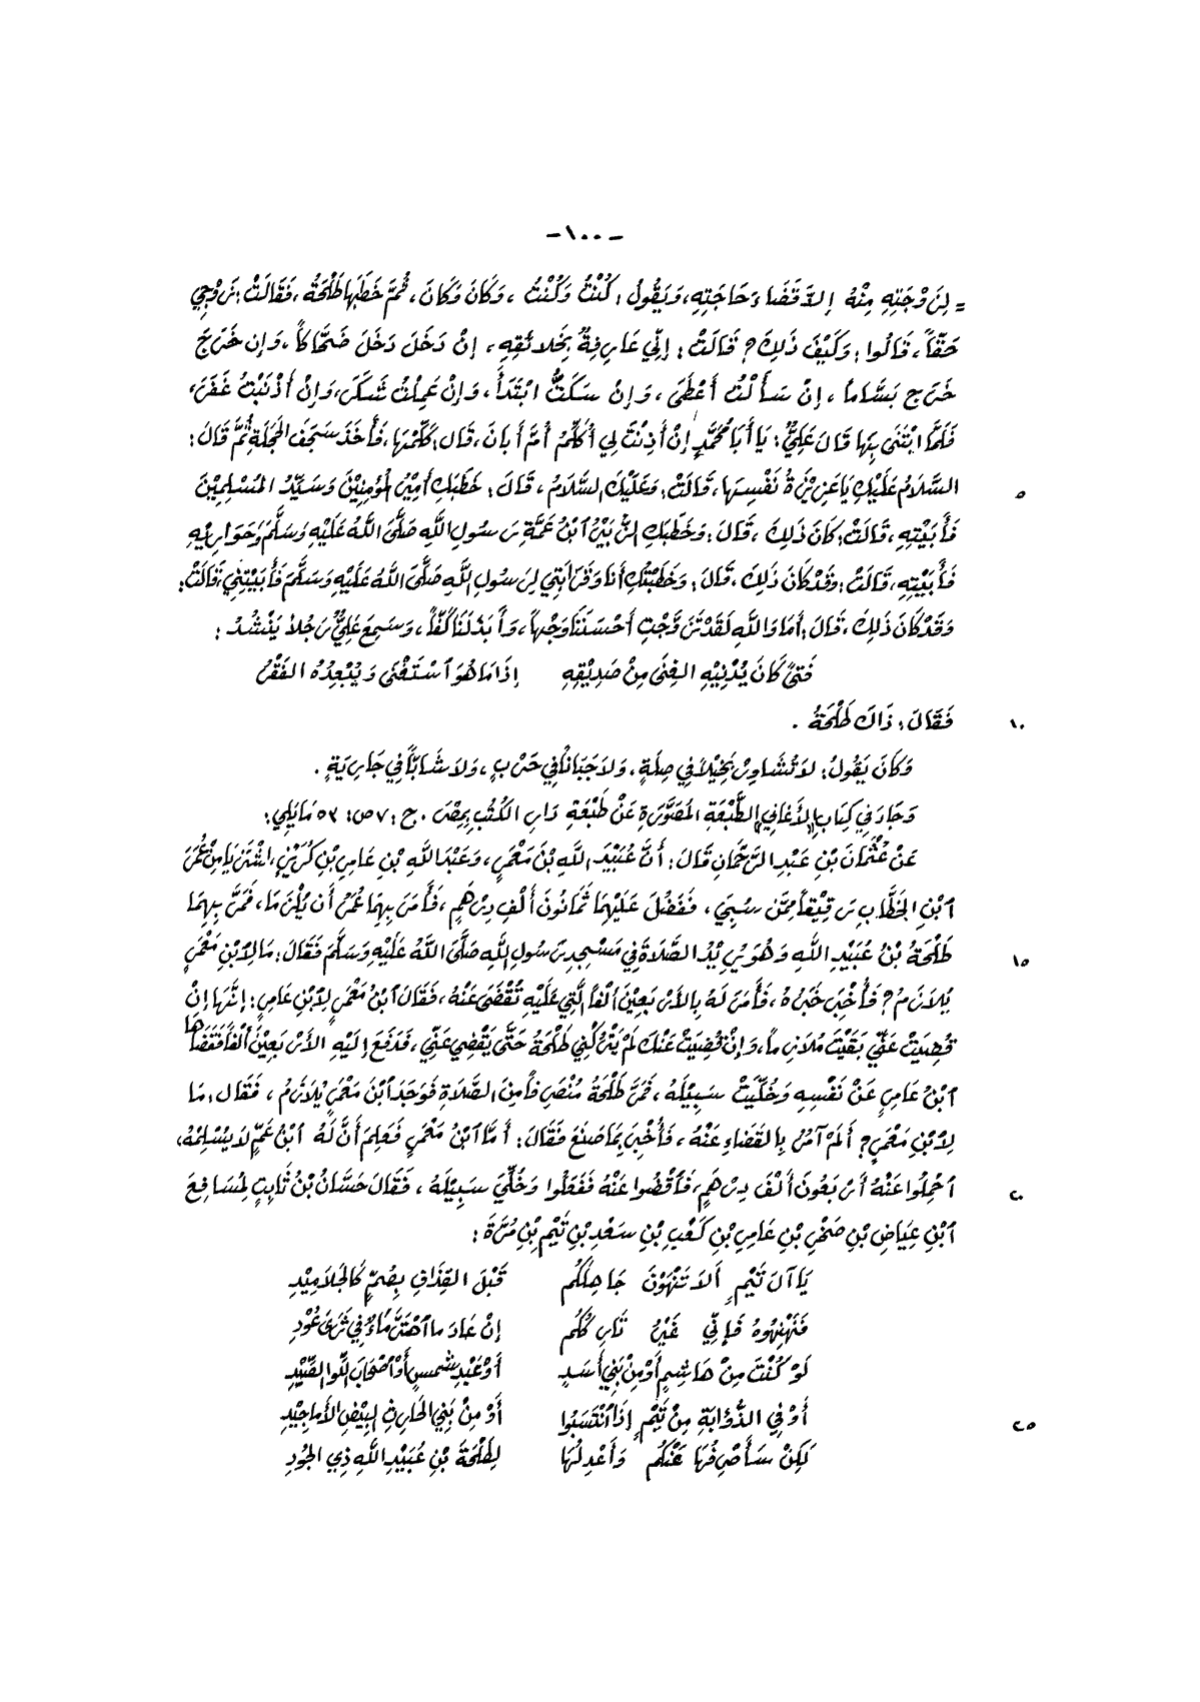 -١٠٠-
= لِزَوْجَتِهِ مِنْهُ إِلاَّ قَضَاءَ حَاجَتِهِ، وَيَقُولُ: كُنْتُ وَكُنْتُ ، وَكَانَ وَكَانَ، ثُمَّ خَطَبَهَا طَلْحَةُ، فَقَالَتْ: زَوْجِي
حَقّاً، قَالُوا: وَكَيْفَ ذَلِكَ؟ قَالَتْ: إِنِّي عَارِفَةٌ بِخَلائقِهِ، إِنْ دَخَلَ دَخَلَ ضَحَّاكاً، وَإِن خَرَجَ
خَرَج بَسَّاماً، إِنْ سَأَلْتُ أَعْطَى، وَإِنْ سَكَتُّ ابْتَدَأَ، وَإِنْ عَمِلْتُ شَكَرَ، وَإِنْ أَذْنَبْتُ غَفَرَ،
فَلَمَّا ابْتَنَى بِهَا قَالَ عَلِيٌّ: يَا أَبَا مُحَمَّدٍ إِنْ أَذِنْتَ لِي أُكَلِّمُ أُمَّ أَبَانَ، قَالَ: كَلِّمْهَا، فَأَخَذَ سَجَفَ الحَجَلَةِ ثُمَّ قَالَ:
السَّلَامُ عَلَيْكِ يَا عَزِيْزَةُ نَفْسِهَا، قَالَتْ: وَعَلَيْكَ السَّلَامُ، قَالَ: خَطَبَكِ أَمِيْرُ المُؤْمِنِيْنَ وَسَيِّدُ المُسْلِمِيْنَ
٥
فَأَبَيْتِهِ، قَالَتْ: كَانَ ذَلِكَ، قَالَ: وَخَطَبَكِ الزُّبَيْرُ ٱبْنُ عَمَّةِ رَسُولِ اللَّهِ صَلَّى اللَّهُ عَلَيْهِ وَسَلَّمَ وَحَوَارِيُّهِ
فَأَبَيْتِهِ، قَالَتْ: وَقَدْ كَانَ ذَلِكَ، قَالَ: وَخَطَبْتُكِ أَنَا وَقَرَابَتِي لِرَسُولِ اللَّهِ صَلَّى اللَّهُ عَلَيْهِ وَسَلَّمَ فَأَبَيْتِنِي، قَالَتْ:
وَقَدْ كَانَ ذَلِكَ، قَالَ: أَمَا وَاللَّهِ لَقَدْ تَزَوَّجْتِ أَحْسَنَنَا وَجْهاً، وَأَبْذَلَنَا كَفّاً، وَسَمِعَ عَلِيٌّ رَجُلاً يَنْشُدُ:
فَتىً كَانَ يُدْنِيْهِ الغِنَى مِنْ صَدِيْقِهِ إِذَا مَا هُوَ ٱسْتَغْنَى وَيُبْعِدُهُ الفَقْرُ
فَقَالَ: ذَاكَ طَلْحَةُ .
١٠
وَكَانَ يَقُولُ: لاَ تُشَاوِرْ بَخِيْلاً فِي صِلَةٍ، وَلاَ جَبَاناً فِي حَرْبٍ، وَلاَ شَابّاً فِي جَارِيَةٍ .
وَجَاءَ فِي كِتَابِ «الأَغَانِي» الطَّبْعَةِ المُصَوَّرَةِ عَنْ طَبْعَةِ دَارِ الكُتُبِ بِمِصْرَ. ج: ٧ ص: ٥٣ مَا يَلِي:
عَنْ عُثْمَانَ بْنِ عَبْدِ الرَّحْمَانِ قَالَ: أَنَّ عُبَيْدَ اللَّهِ بْنَ مَعْمَرٍ، وَعَبْدَ اللَّهِ بْنِ عَامِرِ بْنِ كُرَيْزٍ، اشْتَرَيَا مِنْ عُمَرَ
ٱبْنِ الخَطَّابِ رَقِيْقاً مِمَّن سُبِيَ، فَفَضُلَ عَلَيْهِمَا ثَمَانُونَ أَلْفِ دِرْهَمٍ، فَأَمَرَ بِهِمَا عُمَرُ أَن يُلْزَمَا، فَمَرَّ بِهِمَا
طَلْحَةُ بْنُ عُبَيْدِ اللَّهِ وَهُوَ يُرِيْدُ الصَّلاَةَ فِي مَسْجِدِ رَسُولِ اللَّهِ صَلَّى اللَّهُ عَلَيْهِ وَسَلَّمَ فَقَالَ: مَا لِابْنِ مَعْمَرٍ
١٥
يُلاَزَمُ؟ فَأُخْبِرَ خَبَرُهُ، فَأَمَرَ لَهُ بِالأَرْبَعِيْنَ أَلْفاً الَّتِي عَلَيْهِ تُقْضَى عَنْهُ، فَقَالَ ٱبْنُ مَعْمَرٍ لِابْنِ عَامِرٍ: إِنَّهَا إِنْ
قُضِيَتْ عَنِّي بَقَيْتَ مُلاَزِماً، وَإِنْ قُضِيَتْ عَنْكَ لَمْ يَتْرُكْنِي طَلْحَةُ حَتَّى يَقْضِي عَنِّي، فَدَفَعَ إِلَيْهِ الأَرْبَعِيْنَ أَلْفاً فَقَضَاهَا
ٱبْنُ عَامِرٍ عَنْ نَفْسِهِ وَخُلِّيَتْ سَبِيْلَهُ، فَمَرَّ طَلْحَةُ مُنْصَرِفاً مِنَ الصَّلاَةِ فَوَجَدَ ٱبْنَ مَعْمَرٍ يُلاَزَمُ، فَقَالَ: مَا
لِابْنِ مَعْمَرٍ؟ أَلَمْ آمُرْ بِالقَضَاءِ عَنْهُ، فَأُخْبِرَ بِمَا صَنَعَ فَقَالَ: أَمَّا ٱبْنُ مَعْمَرٍ فَعَلِمَ أَنَّ لَهُ ٱبْنُ عَمٍّ لاَ يُسْلِمُهُ،
ٱحْمِلُوا عَنْهُ أَرْبَعُونَ أَلْفَ دِرْهَمٍ، فَٱقْضُوا عَنْهُ فَفَعَلُوا وَخُلِّيَ سَبِيْلَهُ، فَقَالَ حَسَّانُ بْنُ ثَابِتٍ لِمُسَافِعَ
٢٠
ٱبْنِ عِيَاضِ بْنِ صَخْرِ بْنِ عَامِرِ بْنِ كَعْبِ بْنِ سَعْدِ بْنِ تَيْمِ بْنِ مُرَّةَ:
يَا آلَ تَيْمٍ أَلاَ تَنْهَوْنَ جَاهِلَكُم قَبْلَ القِذَافِ بِصُمٍّ كَالجَلاَمِيْدِ
فَنَهْنِهُوهُ فَإِنِّي غَيْرُ تَارِكُكُم إِنْ عَادَ ما ٱهْتَزَّ مَاءٌ فِي ثَرَى عُودِ
لَوْ كُنْتَ مِنْ هَاشِمٍ أَوْ مِنْ بَنِي أَسَدٍ أَوْ عَبْدِ شَمسٍ أَوْ ٱصْحَابَ اللِّوا الصِّيْدِ
أَوْ فِي الذُّؤَابَةِ مِنْ تَيْمٍ إِذَا ٱنْتَسَبُوا أَوْ مِنْ بَنِي الحَارِثِ البِيْضِ الأَمَاجِيْدِ
٢٥
لَكِنْ سَأَصْرِفُهَا عَنْكُم وَأَعْدِلُهَا لِطَلْحَةَ بْنِ عُبَيْدِ اللَّهِ ذِي الجُودِ